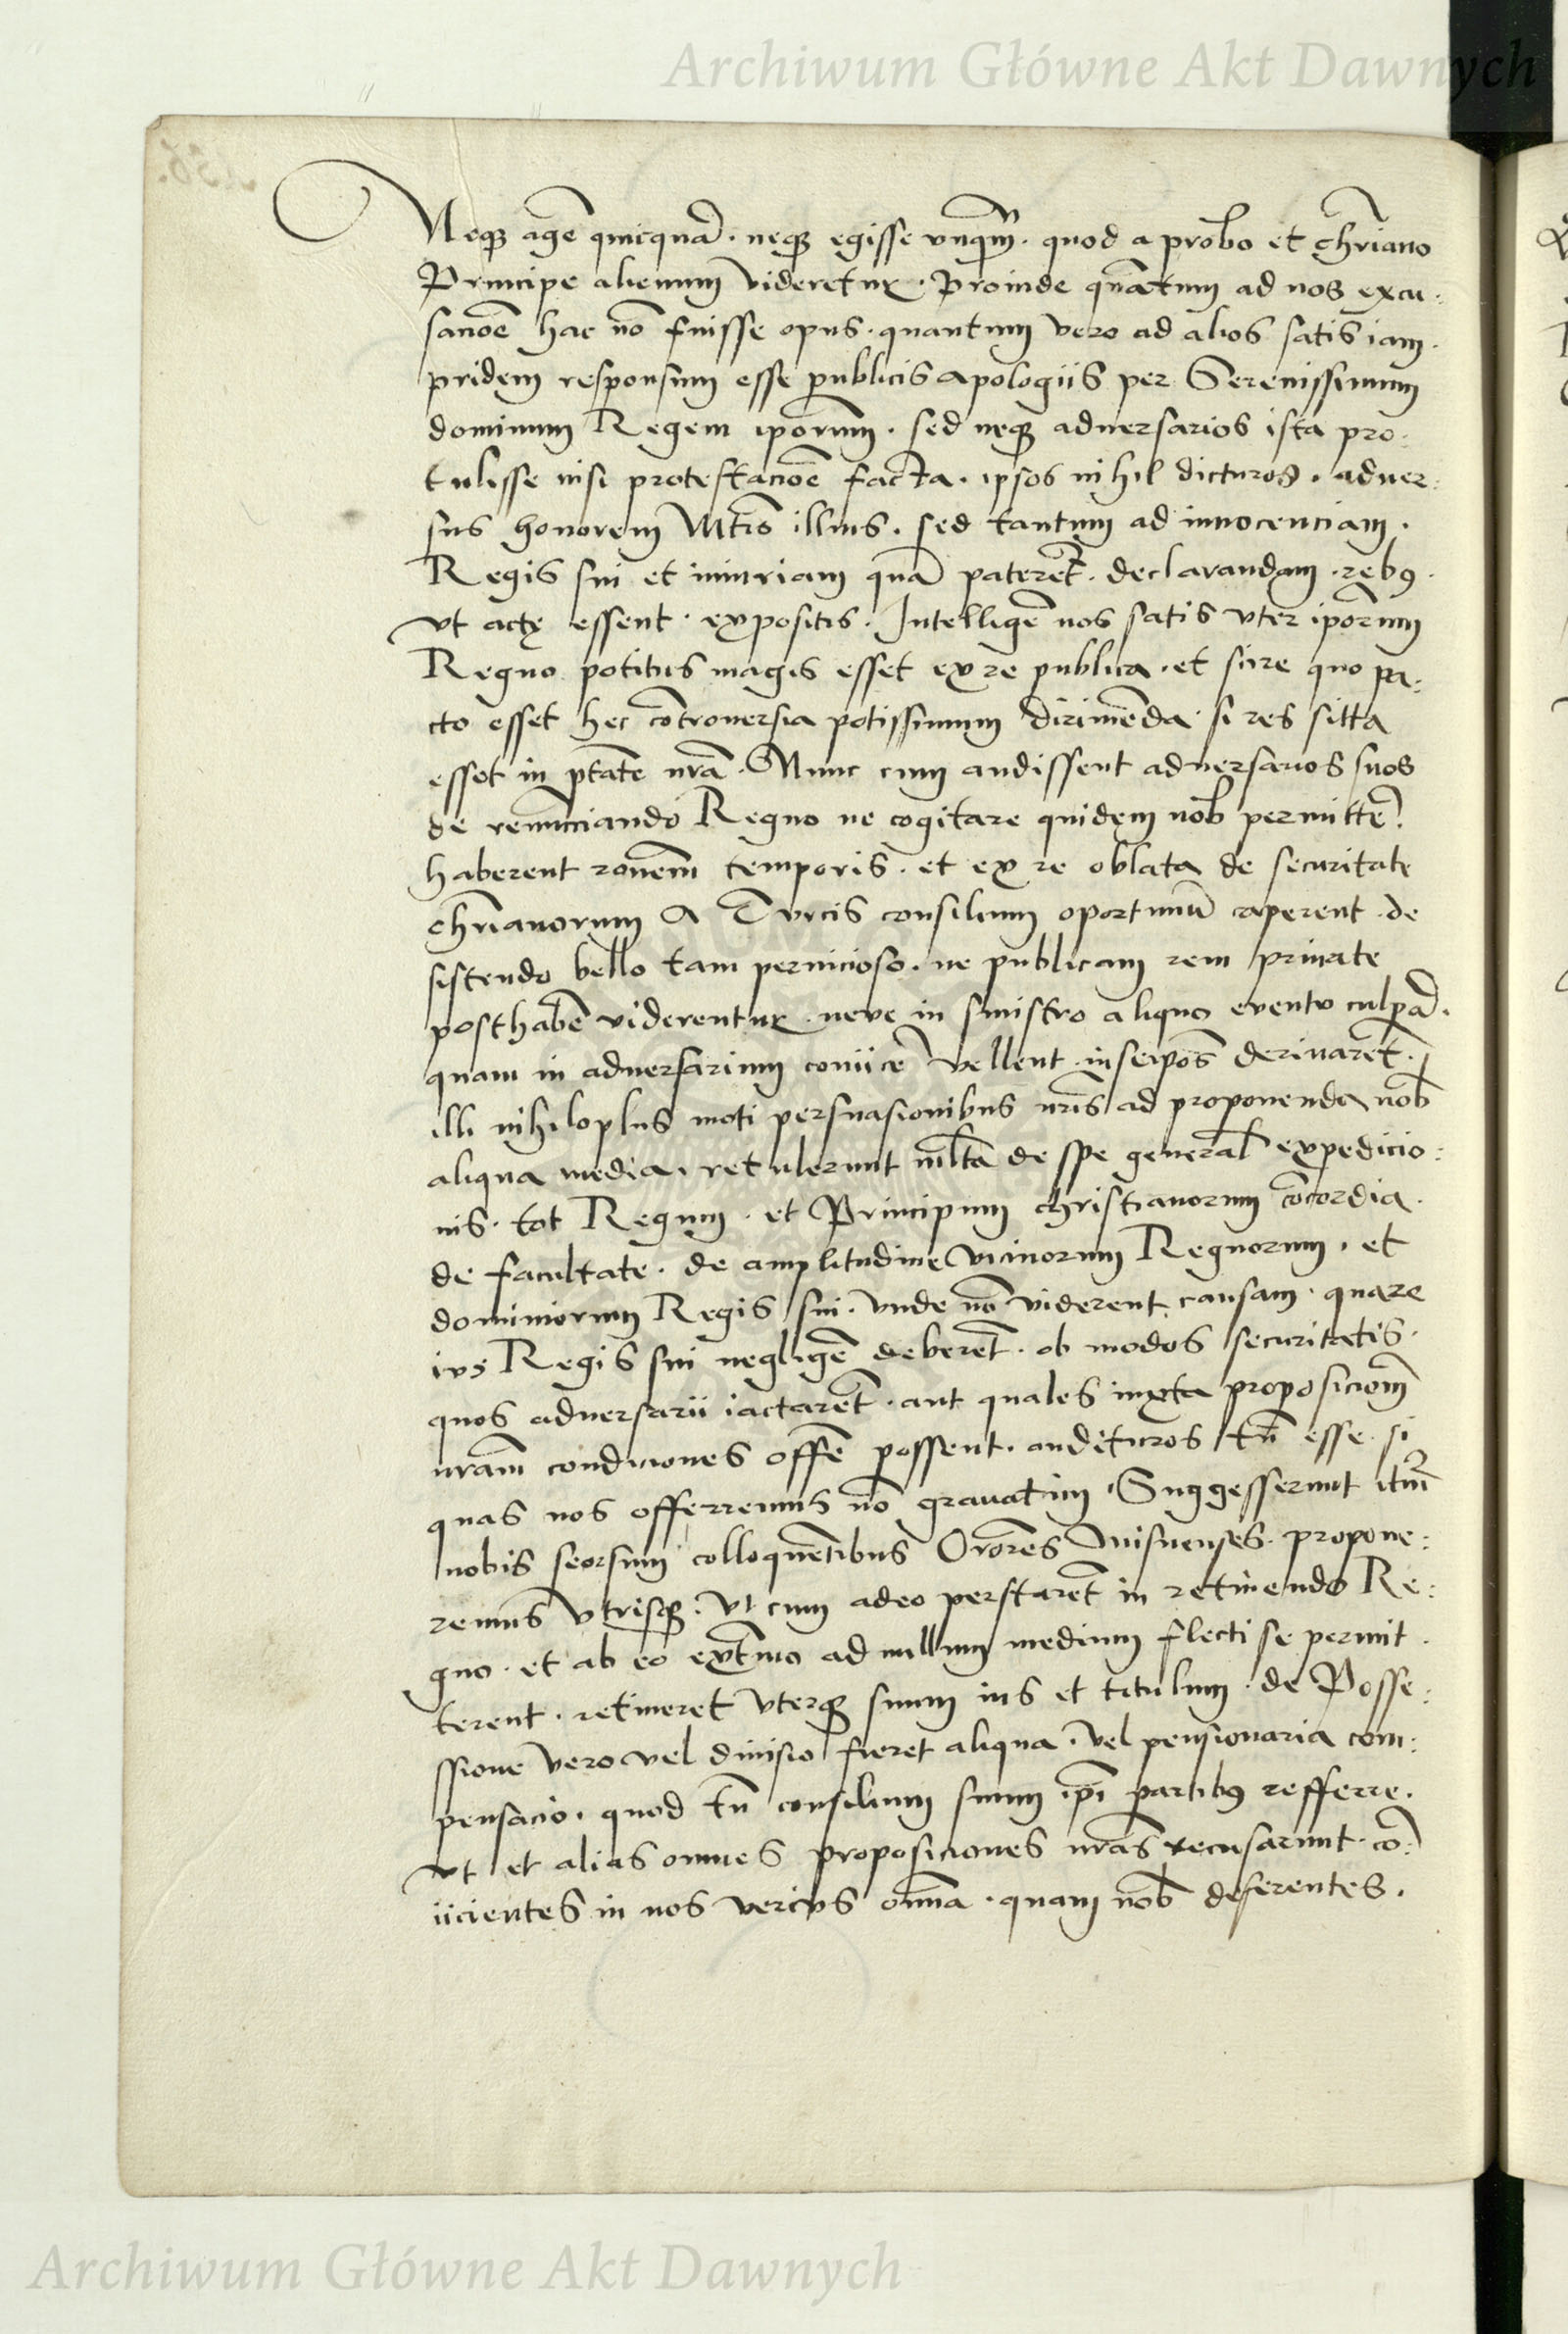 Archiwum Główne Akt Dawnych
Neqꝫ agē quicquā · neqꝫ egisse vnqm̄ · quod a probo et chr̄iano
Principe alienum videretur · Proinde quātum ad nos excu:
sacioē hac nō fuisse opus · quantum vero ad alios satis iam ·
pridem responsum esse publicis apologiis per Serenissimum
dominum Regem ipōrum · sed neqꝫ aduersarios ista pro:
tulisse nisi protestacioē facta · ipsos nihil dicturos · aduer:
sus honorem Mt̄is illius · sed tantum ad innocenciam ·
Regis sui et iniuriam quā paterēt · declarandam · rebꝰ ·
vt actę essent · expositis · Intelligē nos satis vter ipōrum
Regno potitus magis esset ex re publica · et scire quo pa:
cto esset hec cōtrouersia potissimum dirimēda · si res sitta
esset in ptāte nrā · Nunc cum audissent aduersarios suos
de renunciando Regno ne cogitare quidem nob̄ permittē ·
haberent rōnem temporis · et ex re oblata de securitate
chr̄ianorum A Turcis consilium oportunū caperent · de
sistendo bello tam pernicioso · ne publicam rem priuate
posthabē viderentur · neve in sinistro aliquo eventu culpā ·
quam in aduersarium coniicē vellent · in seipōs deriuarēt ·
illi nihiloplus moti persuasionibus nrīs ad proponenda nob̄
aliqua media · retulerunt ml̄ta de spe general̄ expedicio:
nis · tot Regum · et Principum christianorum cōcordia ·
de facultate · de amplitudine vicinorum Regnorum · et
dominiorum Regis sui · vnde nō viderent causam · quare
ius Regis sui negligē deberēt · ob modos securitatis ·
quos aduersarii iactarēt · aut quales iuxta proposiciōm
nrām condiciones offē possent · audituros tn̄ esse · si
quas nos offerremus nō grauatim · Suggesserunt itm̄
nobis seorsum colloquētibus Orōres Misnenses · propone:
remus vtrisqꝫ · vt cum adeo perstarēt in retinendo Re:
gno · et ab eo ext̄mo ad nullum medium flecti se permit ·
terent · retineret vterqꝫ suum ius et titulum · de Posse:
ssione vero vel diuisio fieret aliqua · vel pensionaria com:
pensacio · quod tn̄ consilium suum ip̄i partibꝰ refferre ·
vt et alias omnes proposiciones nrās recusarunt · cō:
iicientes in nos vercius om̄ia · quam nob̄ deferentes ·
Archiwum Główne Akt Dawnych